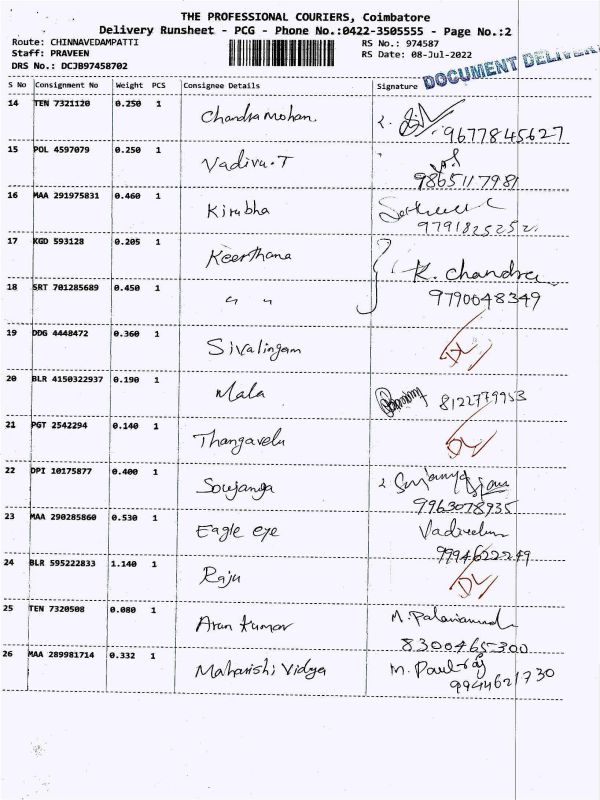 THE PROFESSIONAL COURIERS, Coimbatore
Delivery Runsheet - PCG - Phone No.:0422-3505555 - Page No.:2
Route: CHINNAVEDAMPATTI
RS No.: 974587
Staff: PRAVEEN
RS Date: 08-Jul-2022
DRS No.: DCJB97458702
DOCUMENT DELIVER
S No Consignment No Weight PCS Consignee Details Signature
14 TEN 7321120 0.250 1 Chandra Mohan.
9677845627
15 POL 4597079 0.250 1 Vadivu.T
9865117981
16 MAA 291975831 0.460 1 Kirubha
9791825252
17 KGD 593128 0.205 1 Keerthana
K. Chandra
18 SRT 701285689 0.450 1 " "
9790048349
19 DDG 4448472 0.360 1 Sivalingam DL
20 BLR 4150322937 0.190 1 Mala 8122779953
21 PGT 2542294 0.140 1 Thangavelu DL
22 DPI 10175877 0.400 1 Soujanya
9963078935
23 MAA 290285860 0.530 1 Eagle eye Vadivelu
9994622249
24 BLR 595222833 1.140 1 Raju DL
25 TEN 7320508 0.080 1 Arun kumar
8300465300
26 MAA 289981714 0.332 1 Maharishi Vidya M. Paulraj
9944621730